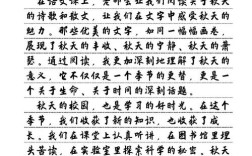 在语文课上，老师会让我们阅读关于秋天
的诗歌和散文，让我们在文字中感受秋天的
魅力。那些优美的文字，如同一幅幅画卷，
展现了秋天的丰收、秋天的宁静、秋天的萧
瑟。通过阅读，我更加深刻地理解了秋天的
意义，它不仅仅是一个季节的更替，更是一
个关于生命、关于时间的深刻话题。
秋天的校园，也是学习的好时光。在这个
季节，我们收获了新的知识，也收获了成
长。我们在课堂上认真听讲，在图书馆里埋
头苦读，在实验室里探索科学的秘密。秋天